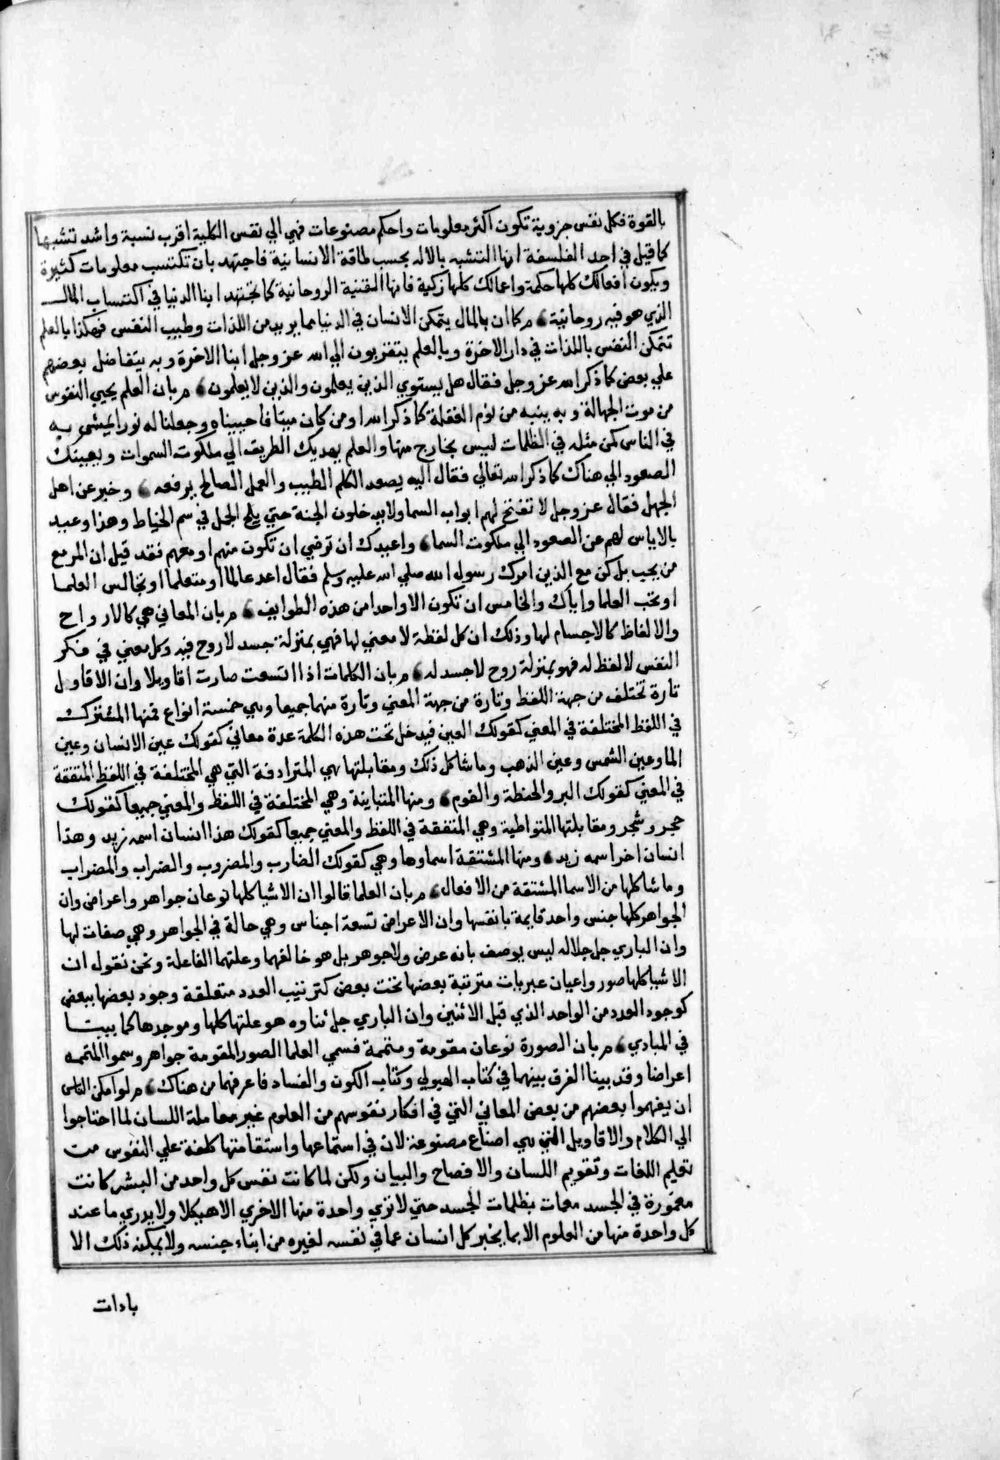 بالقوة فكل نفس جزوية تكون اكثر معلومات واحكم مصنوعات فهي الي نفس الكلية اقرب نسبة واشد تشبها
كما قيل في احد الفلسفة انها التشبه بالاله بحسب طاقة الانسانية فاجتهد بان تكتسب معلومات كثيرة
ويكون افعالك كلها حكمة واعمالك كلها زكية فانها القنية الروحانية كما يجتهد ابنا الدنيا في اكتساب المال
الذي هو قنيه روحانية وكما ان بالمال يتمكن الانسان في الدنيا مما يريد من اللذات وطيب النفس فهكذا بالعلم
تتمكن النفس باللذات في دار الاخرة وبالعلم يتقربون الي الله عز وجل ابنا الاخرة وبه يتفاضل بعضهم
علي بعض كما ذكر الله عز وجل فقال هل يستوي الذين يعلمون والذين لا يعلمون وبان العلم يحيي النفوس
من موت الجهالة وبه ينبه من نوم الغفلة كما ذكر الله او من كان ميتا فاحييناه وجعلنا له نورا يمشي به
في الناس كمن مثله في الظلمات ليس بخارج منها والعلم يهديك الطريق الي ملكوت السموات ويعينك
الصعود الي هناك كما ذكر الله تعالي فقال اليه يصعد الكلم الطيب والعمل الصالح يرفعه وخبر عن اهل
الجهل فقال عز وجل لا تفتح لهم ابواب السما ولا يدخلون الجنة حتي يلج الجمل في سم الخياط وهذا وعيد
بالاياس لهم عن الصعود الي ملكوت السما واعيدك ان ترضي ان تكون منهم او معهم فقد قيل ان المرء مع
من يحب بل كن مع الذين امرك رسول الله صلي الله عليه وسلم فقال اغد عالما او متعلما او تجالس العلما
او تحب العلما واياك والخامس ان تكون الا واحدا من هذه الطوايف وبان المعاني هي كالارواح
والالفاظ كالاجسام لها وذلك ان كل لفظة لا معني لها فهي بمنزلة جسد لا روح فيه وكل معني في فكر
النفس لا لفظ له فهو بمنزلة روح لا جسد له وبان الكلمات اذا اتسعت صارت اقاويلا وان الاقاويل
تارة تختلف من جهة اللفظ وتارة من جهة المعني وتارة منهما جميعا وهي خمسة انواع فمنها المشترك
في اللفظ المختلفة في المعني كقولك العين فيدخل تحت هذه الكلمة عدة معاني كقولك عين الانسان وعين
الما وعين الشمس وعين الذهب وما شاكل ذلك ومقابلتها هي المترادفة التي هي المختلفة في اللفظ المتفقة
في المعني كقولك البر والحنطة والفوم ومنها المتباينة وهي المختلفة في اللفظ والمعني جميعا كقولك
حجر وشجر ومقابلتها المتواطية وهي المتفقة في اللفظ والمعني جميعا كقولك هذا انسان اسمه زيد وهذا
انسان اخر اسمه زيد ومنها المشتقة اسماوها وهي كقولك الضارب والمضروب والضراب والمضراب
وما شاكلها من الاسما المشتقة من الافعال وبان العلما قالوا ان الاشيا كلها نوعان جواهر واعراض وان
الجواهر كلها جنس واحد قايمة بانفسها وان الاعراض تسعة اجناس وهي حالة في الجواهر وهي صفات لها
وان الباري جل جلاله ليس يوصف بانه عرض ولا جوهر بل هو خالقهما وعلتهما الفاعلة ونحن نقول ان
الاشيا كلها صور واعيان غيريات مترتبة بعضها تحت بعض كترتيب العدد متعلقة وجود بعضها ببعض
كوجود العدد من الواحد الذي قبل الاثنين وان الباري جل ثناوه هو علتها كلها وموجدها كما بينا
في المبادي وبان الصورة نوعان مقومة ومتممة فسمي العلما الصور المقومة جواهر وسموا المتممه
اعراضا وقد بينا الفرق بينهما في كتاب الهيولي وكتاب الكون والفساد فاعرفهما من هناك ولو امكن الناس
ان يفهموا بعضهم من بعض المعاني التي في افكار نفوسهم من العلوم غير معاملة اللسان لما احتاجوا
الي الكلام والاقاويل التي هي اصناع مصنوعة لان في استماعها واستقامتها كلفة علي النفوس من
تعليم اللغات وتقويم اللسان والافصاح والبيان ولكن لما كانت نفس كل واحد من البشر كانت
مغمورة في الجسد مغمات بظلمات الجسد حتي لا تري واحدة منها الاخري الا هيكلا ولا يدري ما عند
كل واحدة منها من العلوم الا بما يخبر كل انسان عما في نفسه لغيره من ابناء جنسه ولا يمكنه ذلك الا
بادات